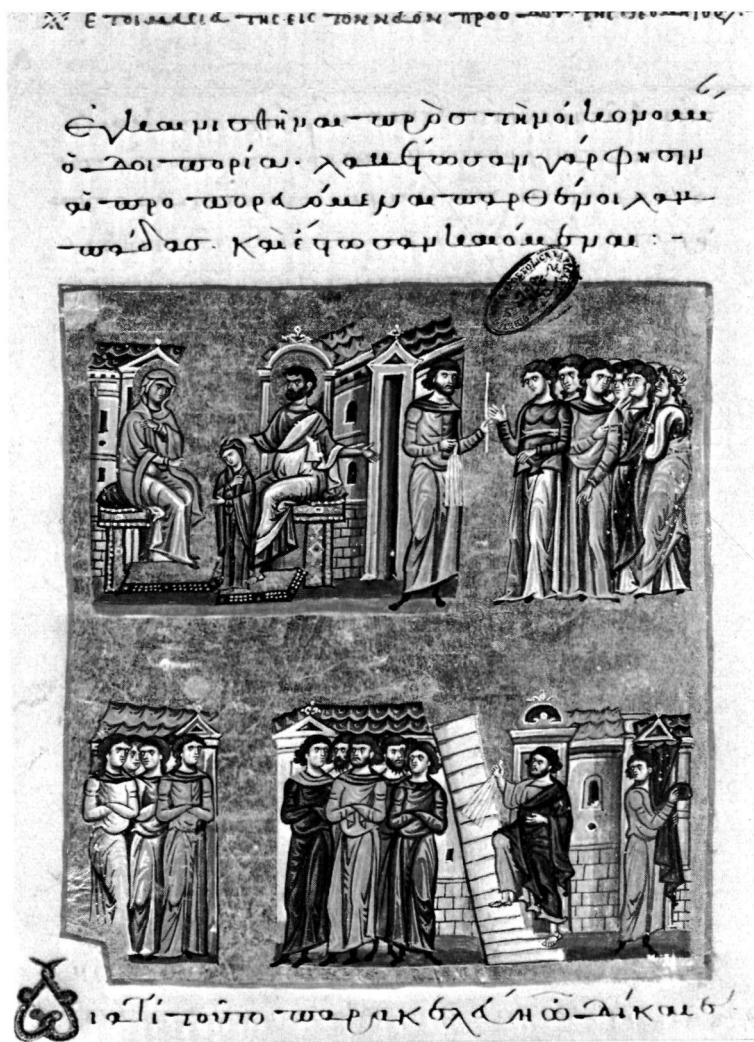 Ἑτοιμασία τῆς εἰς τὸν ναὸν προόδου τῆς θεομήτορος
ἐγκαινισθῆναι πρὸς τὴν
ὁδοιπορίαν. γάρ φησιν
αἱ προπορευόμεναι παρθένοι λαμ
πάδας. καὶ ἔστωσαν καιόμεναι :-
Διατί τοῦτο παρακελεύῃ ὦ δίκαιε